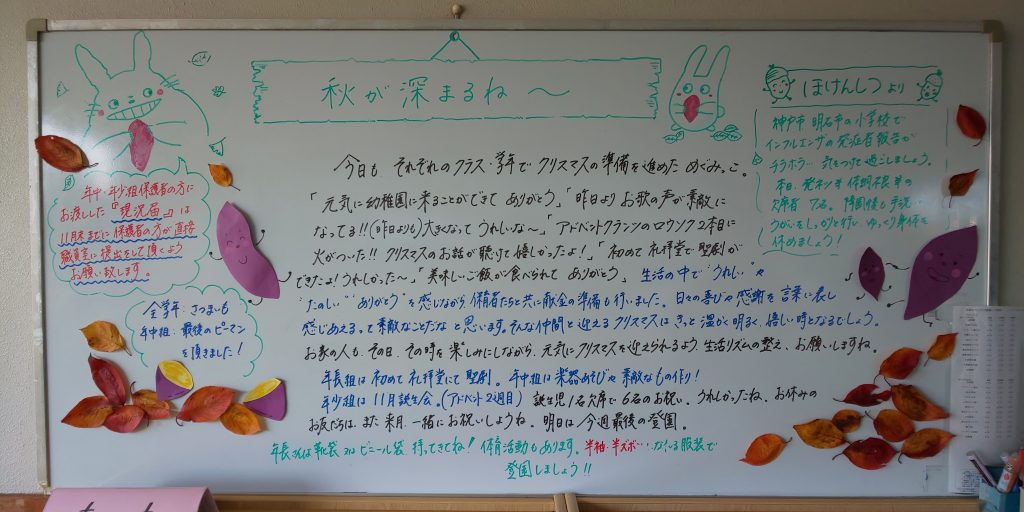 秋が深まるね～
今日も それぞれのクラス・学年で クリスマスの準備を進めた めぐみっこ。
「元気に幼稚園に来ることができて ありがとう」「昨日より お歌の声が素敵に
なってる!!(昨日よりも)大きくなって うれしいな～」「アドベントクランツの ロウソク 2本目に
火がついた!! クリスマスのお話が聴けて嬉しかったよ！」「初めて 礼拝堂で 聖劇が
できたよ！うれしかった～」「美味しいご飯が食べられて ありがとう」 生活の中で"うれしい"や
"たのしい""ありがとう"を感じながら 保育者たちと共に献金の準備も行いました。日々の喜びや感謝を言葉に表し
感じあえるって素敵なことだな と思います。そんな仲間と迎える クリスマスは きっと 温かく明るく、嬉しい時となるでしょう。
お家の人も、その日、その時を楽しみにしながら、元気にクリスマスを迎えられるよう、生活リズムの整え、お願いしますね。
年長組は 初めて 礼拝堂にて 聖劇。年中組は 楽器あそびや 素敵なもの作り！
年少組は 11月誕生会。(アドベント2週目) 誕生児1名欠席で 6名のお祝い。うれしかったね。お休みの
お友だちは、また 来月、一緒に お祝いしようね。明日は 今週最後の登園。
年長さんは 靴袋 ビニール袋 持ってきてね！体育活動もあります。半袖・半ズボン
服装で
登園しましょう!!
年中・年少組保護者の方に
お渡しした『現況届』は
11月末までに 保護者の方が直接
職員室に提出をして頂くよう
お願い致します。
全学年：さつまいも
年中組：最後のピーマン
を頂きました！
ほけんしつより
神戸市 明石市の小学校で
インフルエンザの発症者報告が
チラホラ… 気をつけて過ごしましょう。
本日、発熱
欠席者 7名。降園後も手洗い
うがいをしっかりと行い、ゆっくり身体を
休めましょう！